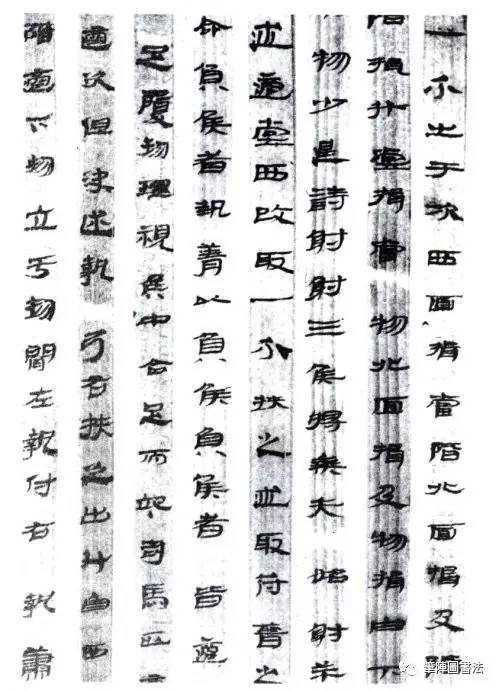 一个出于次西面揖當階北面揖及階
階揖升堂揖當物北面揖及物揖由下
物少退誘射射三侯將乘矢始射
述適堂西改取一个挾之述取付晉之
命負侯者執菁以負侯負侯者皆適
足履物視侯中合足而司馬正
適次但決述執弓右挾之出升自西
階適下物立于物間左執付右執蕭
筆陣圖書法